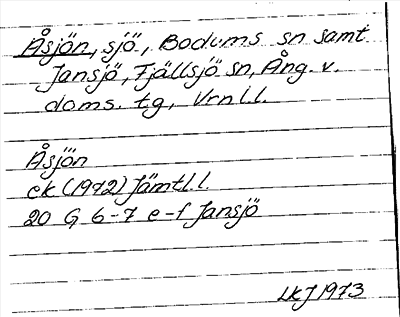 Åsjön, sjö, Bodums sn samt
Jansjö, Fjällsjö sn, Ång. v.
doms. tg, Vrnl.l.
Åsjön
ek (1972) Jämtl.l.
20 G 6-7 e-f Jansjö
LKJ 1973